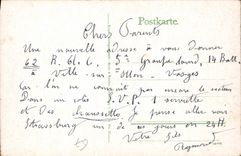 Postkarte.
Chers Parents
Une nouvelle adresse à vous donner
62 R. G. A. 5e Groupe lourd, 14 Batt.
à Ville-sur-Illon - Vosges
Car l'on ne connait pas encore le secteur
Dans un colis S.V.P. 1 serviette
et des Je pense aller voir
Strasbourg un de ces jours en 24 H.
Votre fils
Raymond